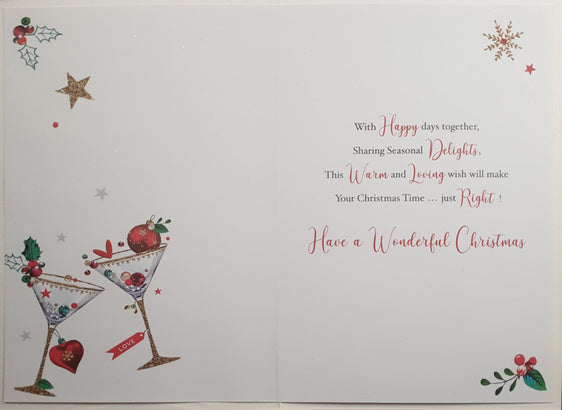 LOVE
With Happy days together,
Sharing Seasonal Delights,
This Warm and Loving wish will make
Your Christmas Time ... just Right !
Have a Wonderful Christmas